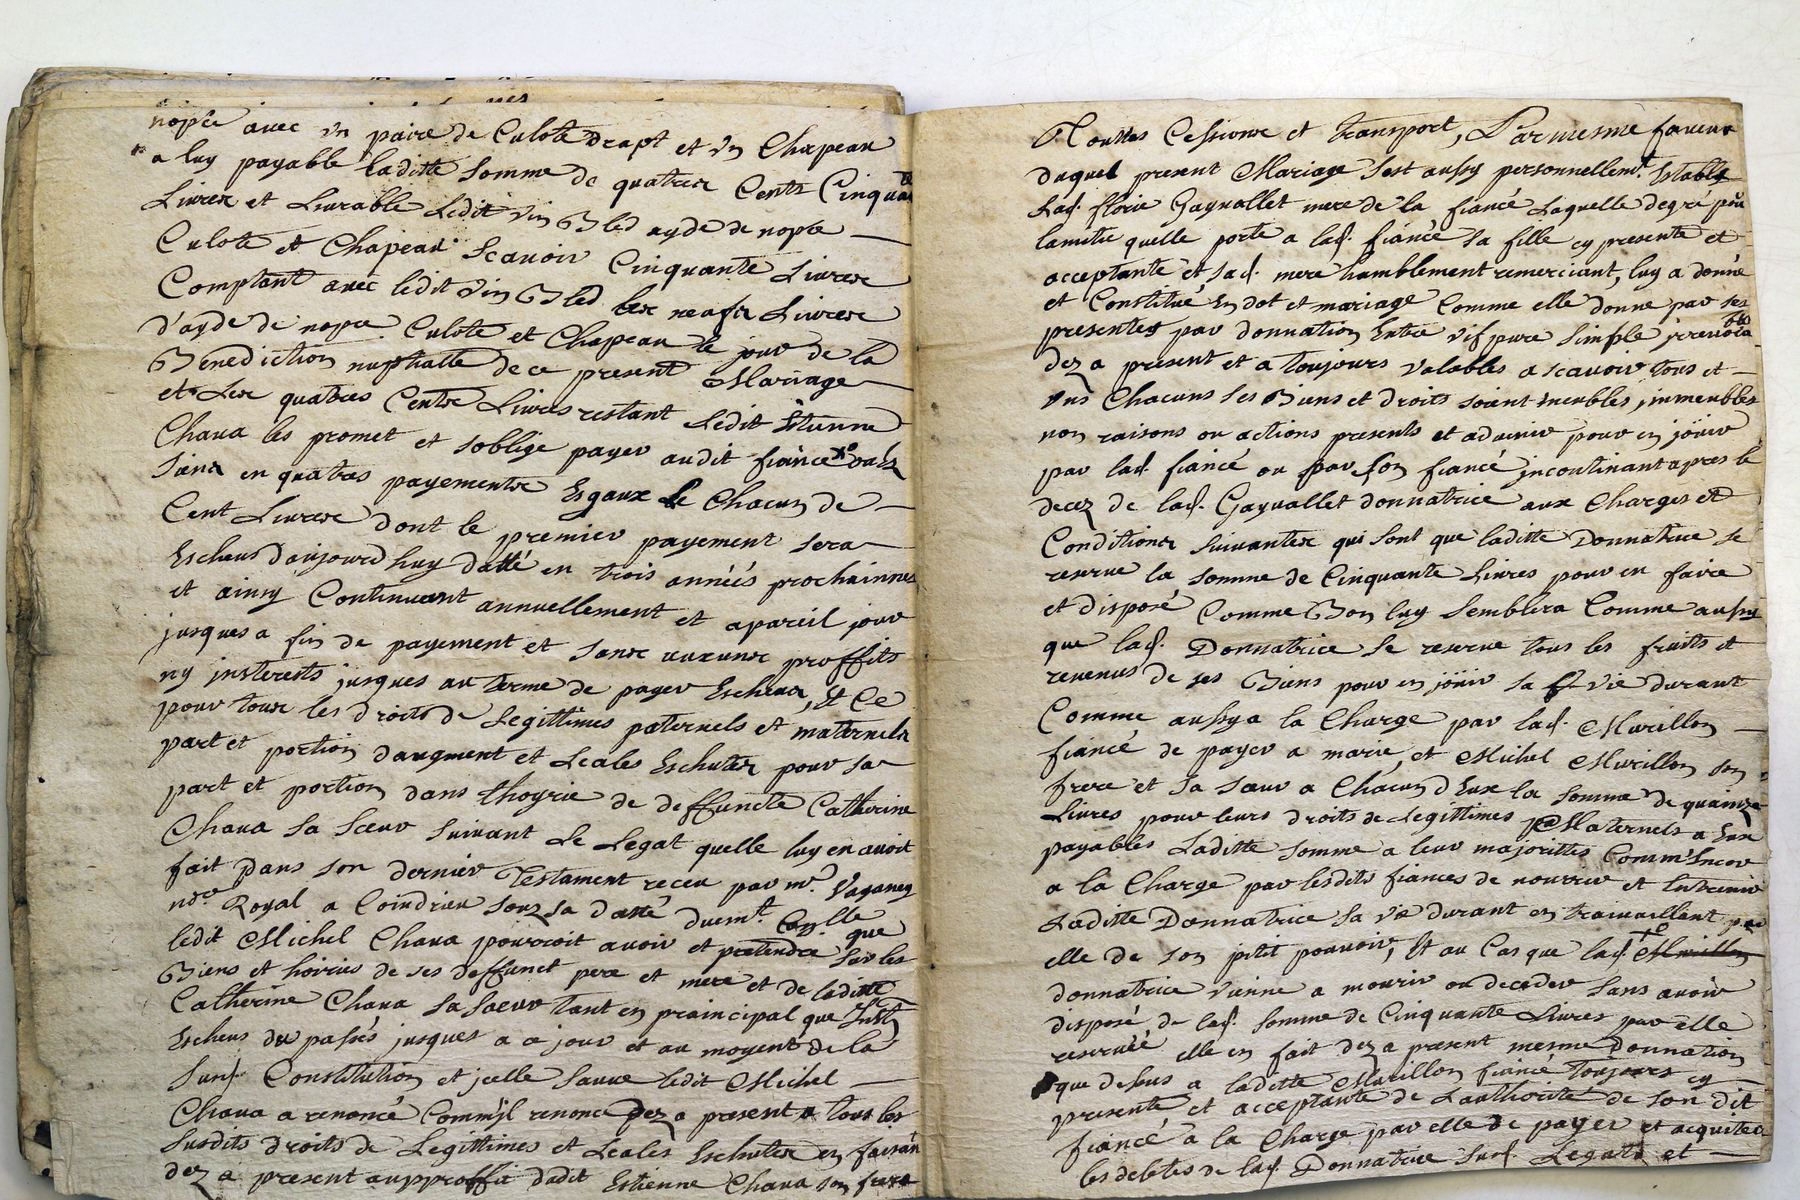 nopce avec vn paire de Culote drapt et vn Chapeau
a luy payable laditte Somme de quatres Cents Cinquante
Livres et Livrable Ledit vin Bled ayde de nopce
Culote et Chapeau Scavoir Cinquante Livres
Comptant avec ledit vin Bled les neufs Livres
d'ayde de nopce Culote et Chapeau le jour de la
Benediction nuptialle de ce present Mariage
et Les quatres Cents Livres restant Ledit Etienne
Chava les promet et soblige payer audit fiancé
Sienx en quatres payements Esgaux de Chacun de
Cent Livres dont le premier payement sera
Escheus daujourdhuy datté en trois années prochainnes
et ainsy Continuant annuellement et apareil jour
jusques a fin de payement et sans aucuns proffits
ny insterests jusques au terme de payer Escheus, Et Ce
pour tous les droits de Legittimes paternels et maternels
part et portion daugment et Leales Eschutes pour sa
part et portion dans lhoyrie de deffuncte Catherine
Chava sa Sœur suivant Le Legat quelle luy en avoit
fait dans son dernier Testament receu par me. Vaganey
nore. Royal a Coindrieu sous sa datte duemt. Conlle que
ledit Michel Chava pourroit avoir et pretendre Sur les
Biens et hoiries de ses deffunct pere et mere et de laditte
Catherine Chava sa Saeur tant en praincipal que Inst
Escheus du passés jusques a ce jour et au moyent de la
Susd. Constitution et jcelle sauve ledit Michel
Chava a renoncé Comm'jl renonce dez a present a tous les
Susdits droits de Legittimes et Leales Eschutes en faisant
dez a present aupproffit dudit Estienne Chava son frere
Touttes Cessions et transport, Parmesme faveur
duquel present Mariage Sest aussy personnellemt. Establi
Lad. florie Gayvallet mere de la fiancé Laquelle degré pour
lamitié quelle porte a lad. fiancée sa fille cy presente et
acceptante et sad. mere humblement remerciant, luy a donné
et Constitué En dot et mariage Comme elle donne par ses
presentes par donnation Entre vif pure simple jrrevocable
dez a present et a toujours valables a scavoir tous et
vns Chacuns ses Biens et droits soient meubles, jmmeubles
nom raisons ou actions presents et advenir pour en jöuir
par lad. fiancé ou par son fiancé jncontinant apres le
decez de lad. Gayvallet donnatrice aux Charges et
Conditions suivantes qui sont que laditte Donnatrice se
reserve la somme de Cinquante Livres pour en faire
et disposé Comme Bon luy Semblera Comme aussy
que lad. Donnatrice se reserve tous les fruits et
revenus de ses Biens pour en jöuir sa vie durant
Comme aussy a la Charge par lad. Murillon
fiancé de payer a marie, et Michel Murillon son
frere et sa sœur a Chacun d'Eux la somme de quainze
Livres pour leurs droits de Legittimes Maternels a Eux
payables Laditte somme a leur majorittés Comm'Encor
a la Charge par lesdits fiances de nourrir et Entretenir
Laditte Donnatrice sa vie durant en travaillant par
elle de son petit pouvoir, Et au Cas que lad. Murillon
donnatrice vienne a mourir ou deceder sans avoir
disposé, de lad. somme de Cinquante Livres par elle
reservée elle en fait dez a present mesme Donnation
que dessus a laditte Murillon fiancé toujours cy
presente et acceptante de Lauthorité de son dit
fiancé a la Charge par elle de payer et acquiter
les debtes de lad. Donnatrice Susd. Legats et